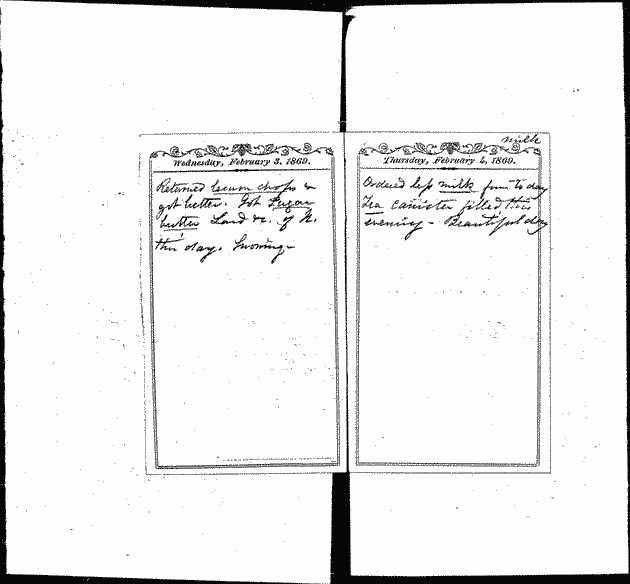 Wednesday, February 3, 1869.
Returned lemon chops &
got butter. Got Sugar
butter Lard &c. of N.
this day. Snowing –
milk
Thursday, February 4, 1869.
Ordered less milk from to day
Tea canister filled this
evening – Beautiful day